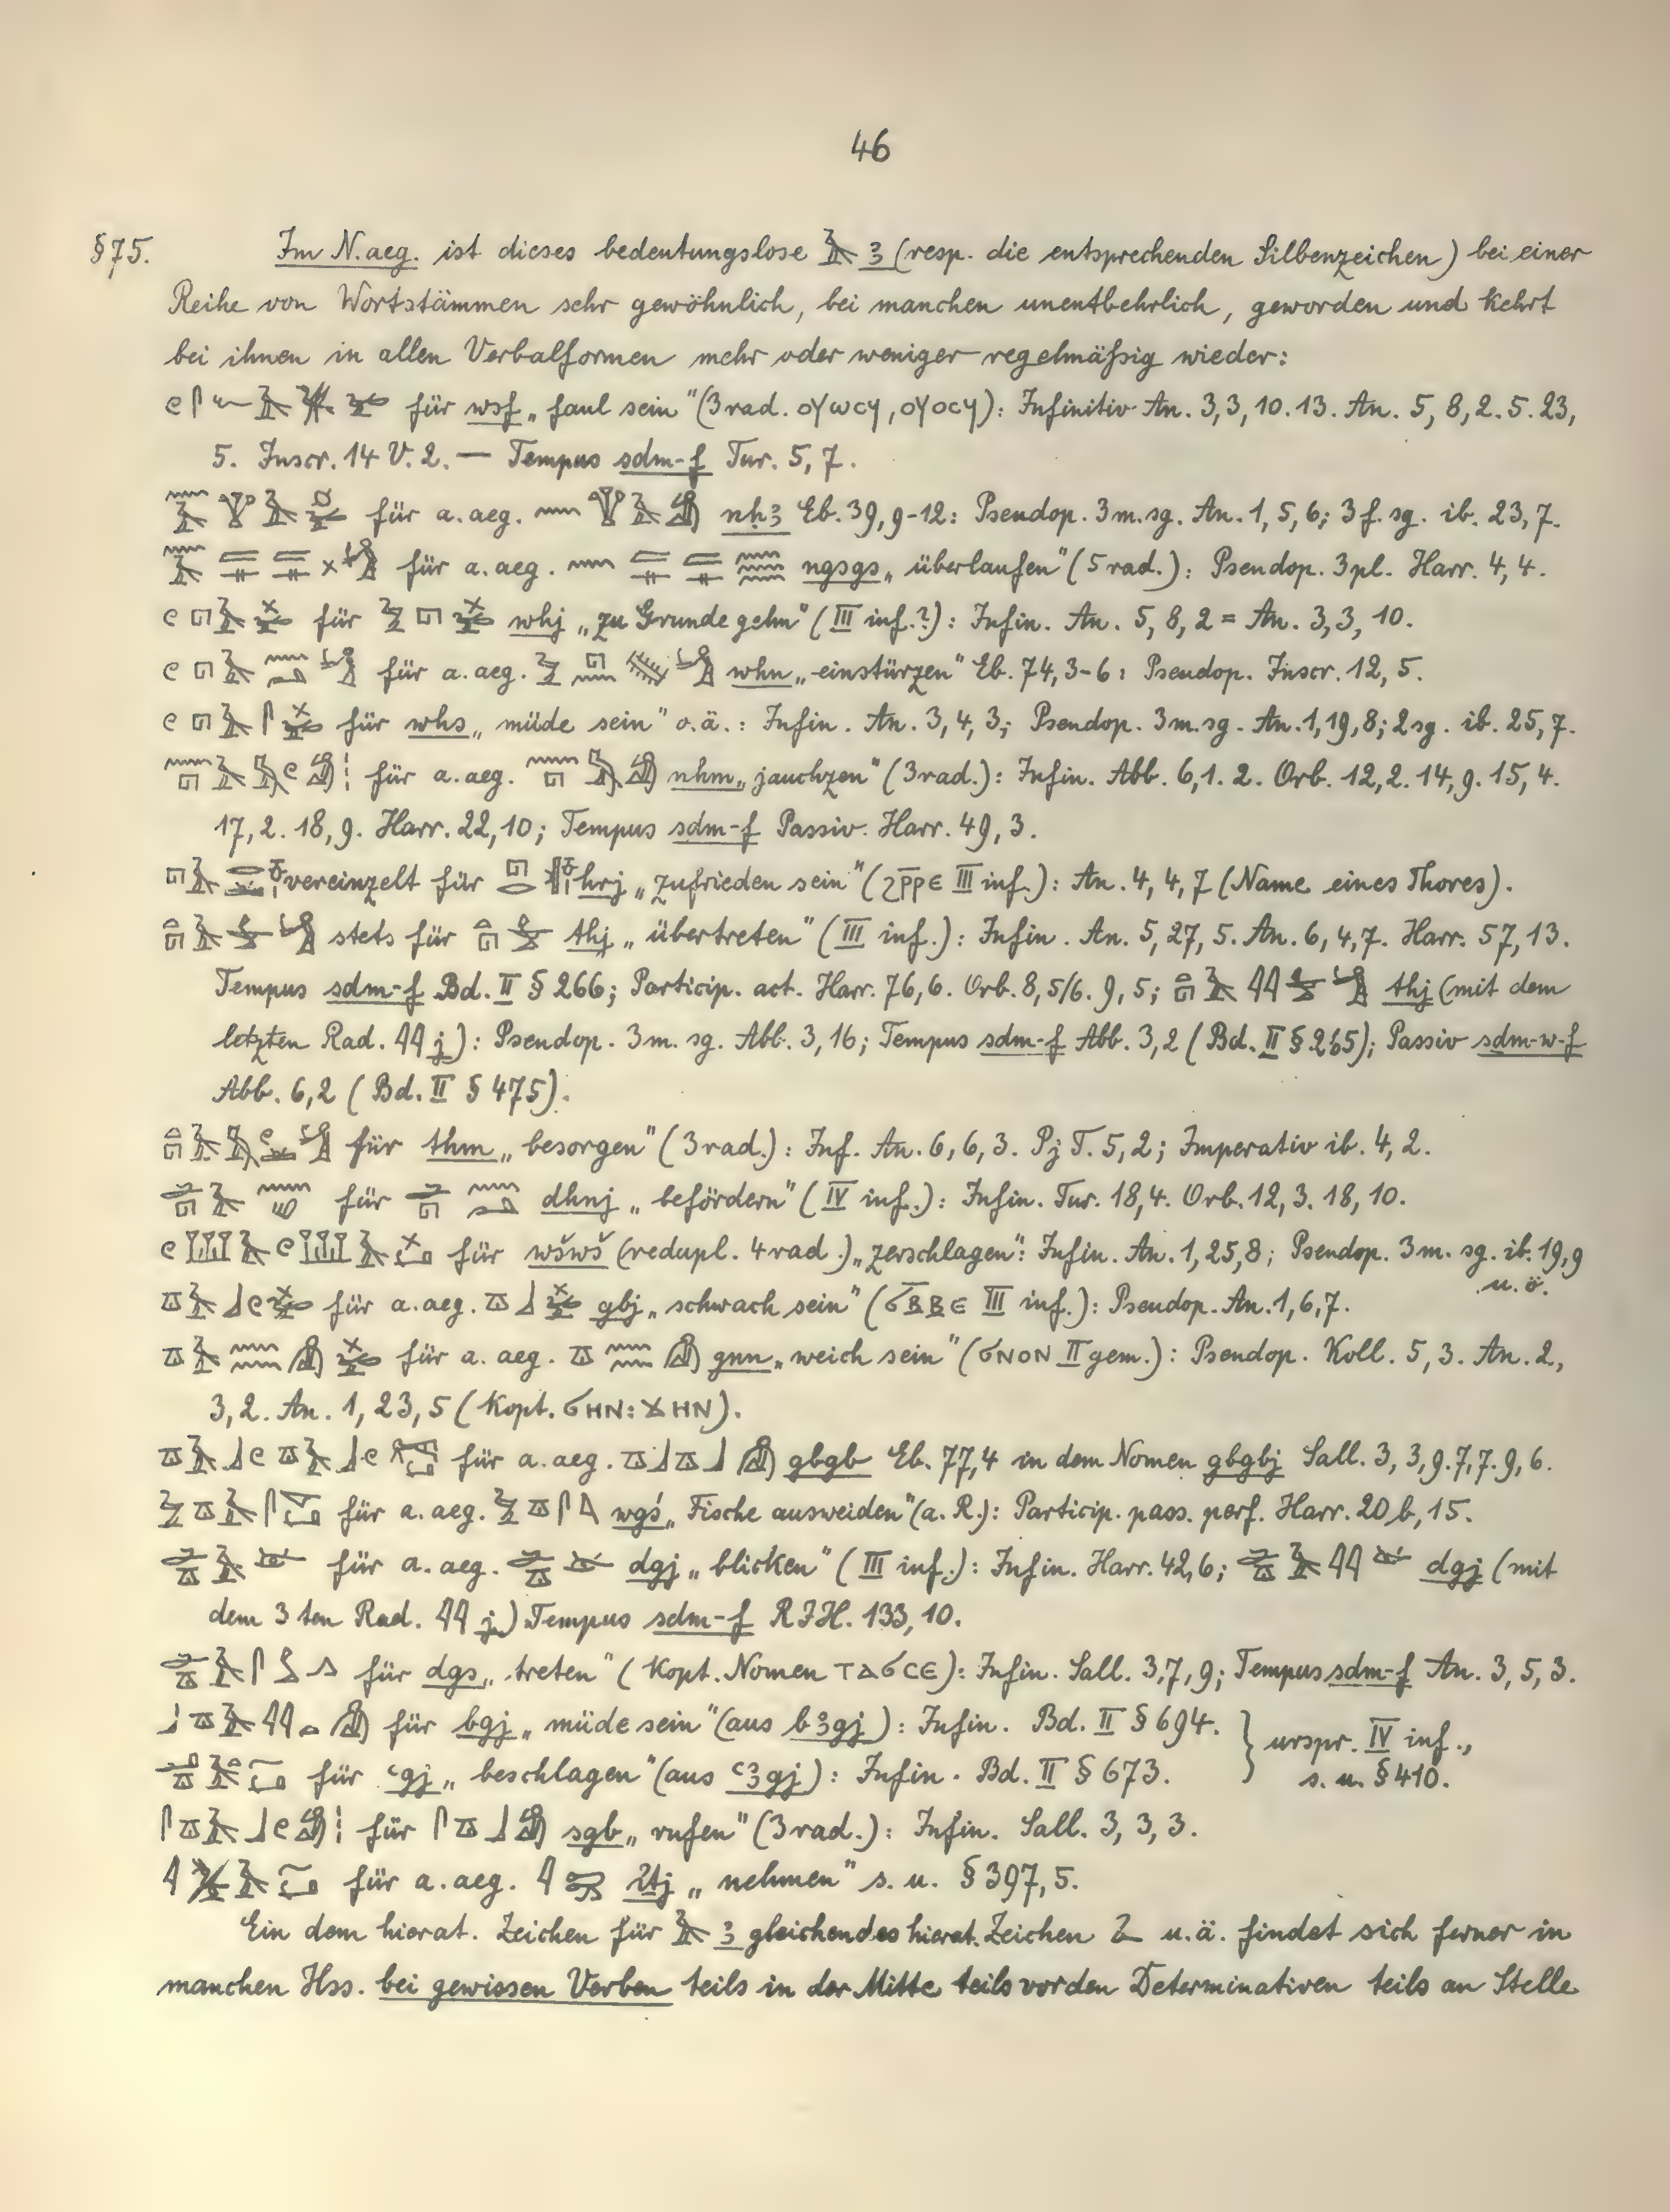 46
§75. Im N.aeg. ist dieses bedeutungslose 𓄿 ꜣ (resp. die entsprechenden Silbenzeichen) bei einer
Reihe von Wortstämmen sehr gewöhnlich, bei manchen unentbehrlich, geworden und kehrt
bei ihnen in allen Verbalformen mehr oder weniger regelmäßig wieder:
für wsf „faul sein“ (3rad. ⲟⲩⲱⲥϥ, ⲟⲩⲟⲥϥ): Infinitiv An. 3,3,10.13. An. 5,8,2.5.23,
5. Inscr. 14 V. 2. — Tempus sdm-f Tur. 5,7.
für a.aeg. nḥꜣ Eb. 39,9-12: Pseudop. 3m.sg. An. 1,5,6; 3f.sg. ib. 23,7.
für a.aeg. ngsgs „überlaufen“ (5rad.): Pseudop. 3pl. Harr. 4,4.
für whj „zu Grunde gehn“ (III inf.?): Infin. An. 5,8,2 = An. 3,3,10.
für a.aeg. whn „einstürzen“ Eb. 74,3-6: Pseudop. Inscr. 12,5.
für whs „müde sein“ o.ä.: Infin. An. 3,4,3; Pseudop. 3m.sg. An. 1,19,8; 2sg. ib. 25,7.
für a.aeg. nhm „jauchzen“ (3rad.): Infin. Abb. 6,1.2. Orb. 12,2.14,9.15,4.
17,2.18,9. Harr. 22,10; Tempus sdm-f Passiv. Harr. 49,3.
vereinzelt für hrj „zufrieden sein“ (ϩⲣ̅ⲣⲉ III inf.): An. 4,4,7 (Name eines Thores).
stets für thj „übertreten“ (III inf.): Infin. An. 5,27,5. An. 6,4,7. Harr. 57,13.
Tempus sdm-f Bd. II § 266; Particip. act. Harr. 76,6. Orb. 8,5/6. 9,5; thj (mit dem
letzten Rad. 𓇌 j): Pseudop. 3m.sg. Abb. 3,16; Tempus sdm-f Abb. 3,2 (Bd. II § 265); Passiv sdm-w-f
Abb. 6,2 (Bd. II § 475).
für thm „besorgen“ (3rad.): Inf. An. 6,6,3. Pj T. 5,2; Imperativ ib. 4,2.
für dhnj „befördern“ (IV inf.): Infin. Tur. 18,4. Orb. 12,3. 18,10.
für wšwš (redupl. 4rad.) „zerschlagen“: Infin. An. 1,25,8; Pseudop. 3m.sg. ib. 19,9
u.ö.
für a.aeg. gbj „schwach sein“ (ϭⲃⲃⲉ III inf.): Pseudop. An. 1,6,7.
für a.aeg. gnn „weich sein“ (ϭⲛⲟⲛ II gem.): Pseudop. Koll. 5,3. An. 2,
3,2. An. 1,23,5 (Kopt. ϭⲏⲛ: ϫⲏⲛ).
für a.aeg. gbgb Eb. 77,4 in dem Nomen gbgbj Sall. 3,3,9.7,7.9,6.
für a.aeg. wgś „Fische ausweiden“ (a.R.): Particip. pass. perf. Harr. 20b,15.
für a.aeg. dgj „blicken“ (III inf.): Infin. Harr. 42,6; dgj (mit
dem 3ten Rad. 𓇌 j) Tempus sdm-f RIH. 133,10.
für dgs „treten“ (Kopt. Nomen ⲧⲁϭⲥⲉ): Infin. Sall. 3,7,9; Tempus sdm-f An. 3,5,3.
für bgj „müde sein“ (aus bꜣgj): Infin. Bd. II § 694. } urspr. IV inf.,
für ꜥgj „beschlagen“ (aus ꜥꜣgj): Infin. Bd. II § 673. s.u. § 410.
für sgb „rufen“ (3rad.): Infin. Sall. 3,3,3.
für a.aeg. „nehmen“ s.u. § 397,5.
Ein dem hierat. Zeichen für 𓄿 ꜣ gleichendes hierat. Zeichen u.ä. findet sich ferner in
manchen Hss. bei gewissen Verben teils in der Mitte teils vor den Determinativen teils an Stelle